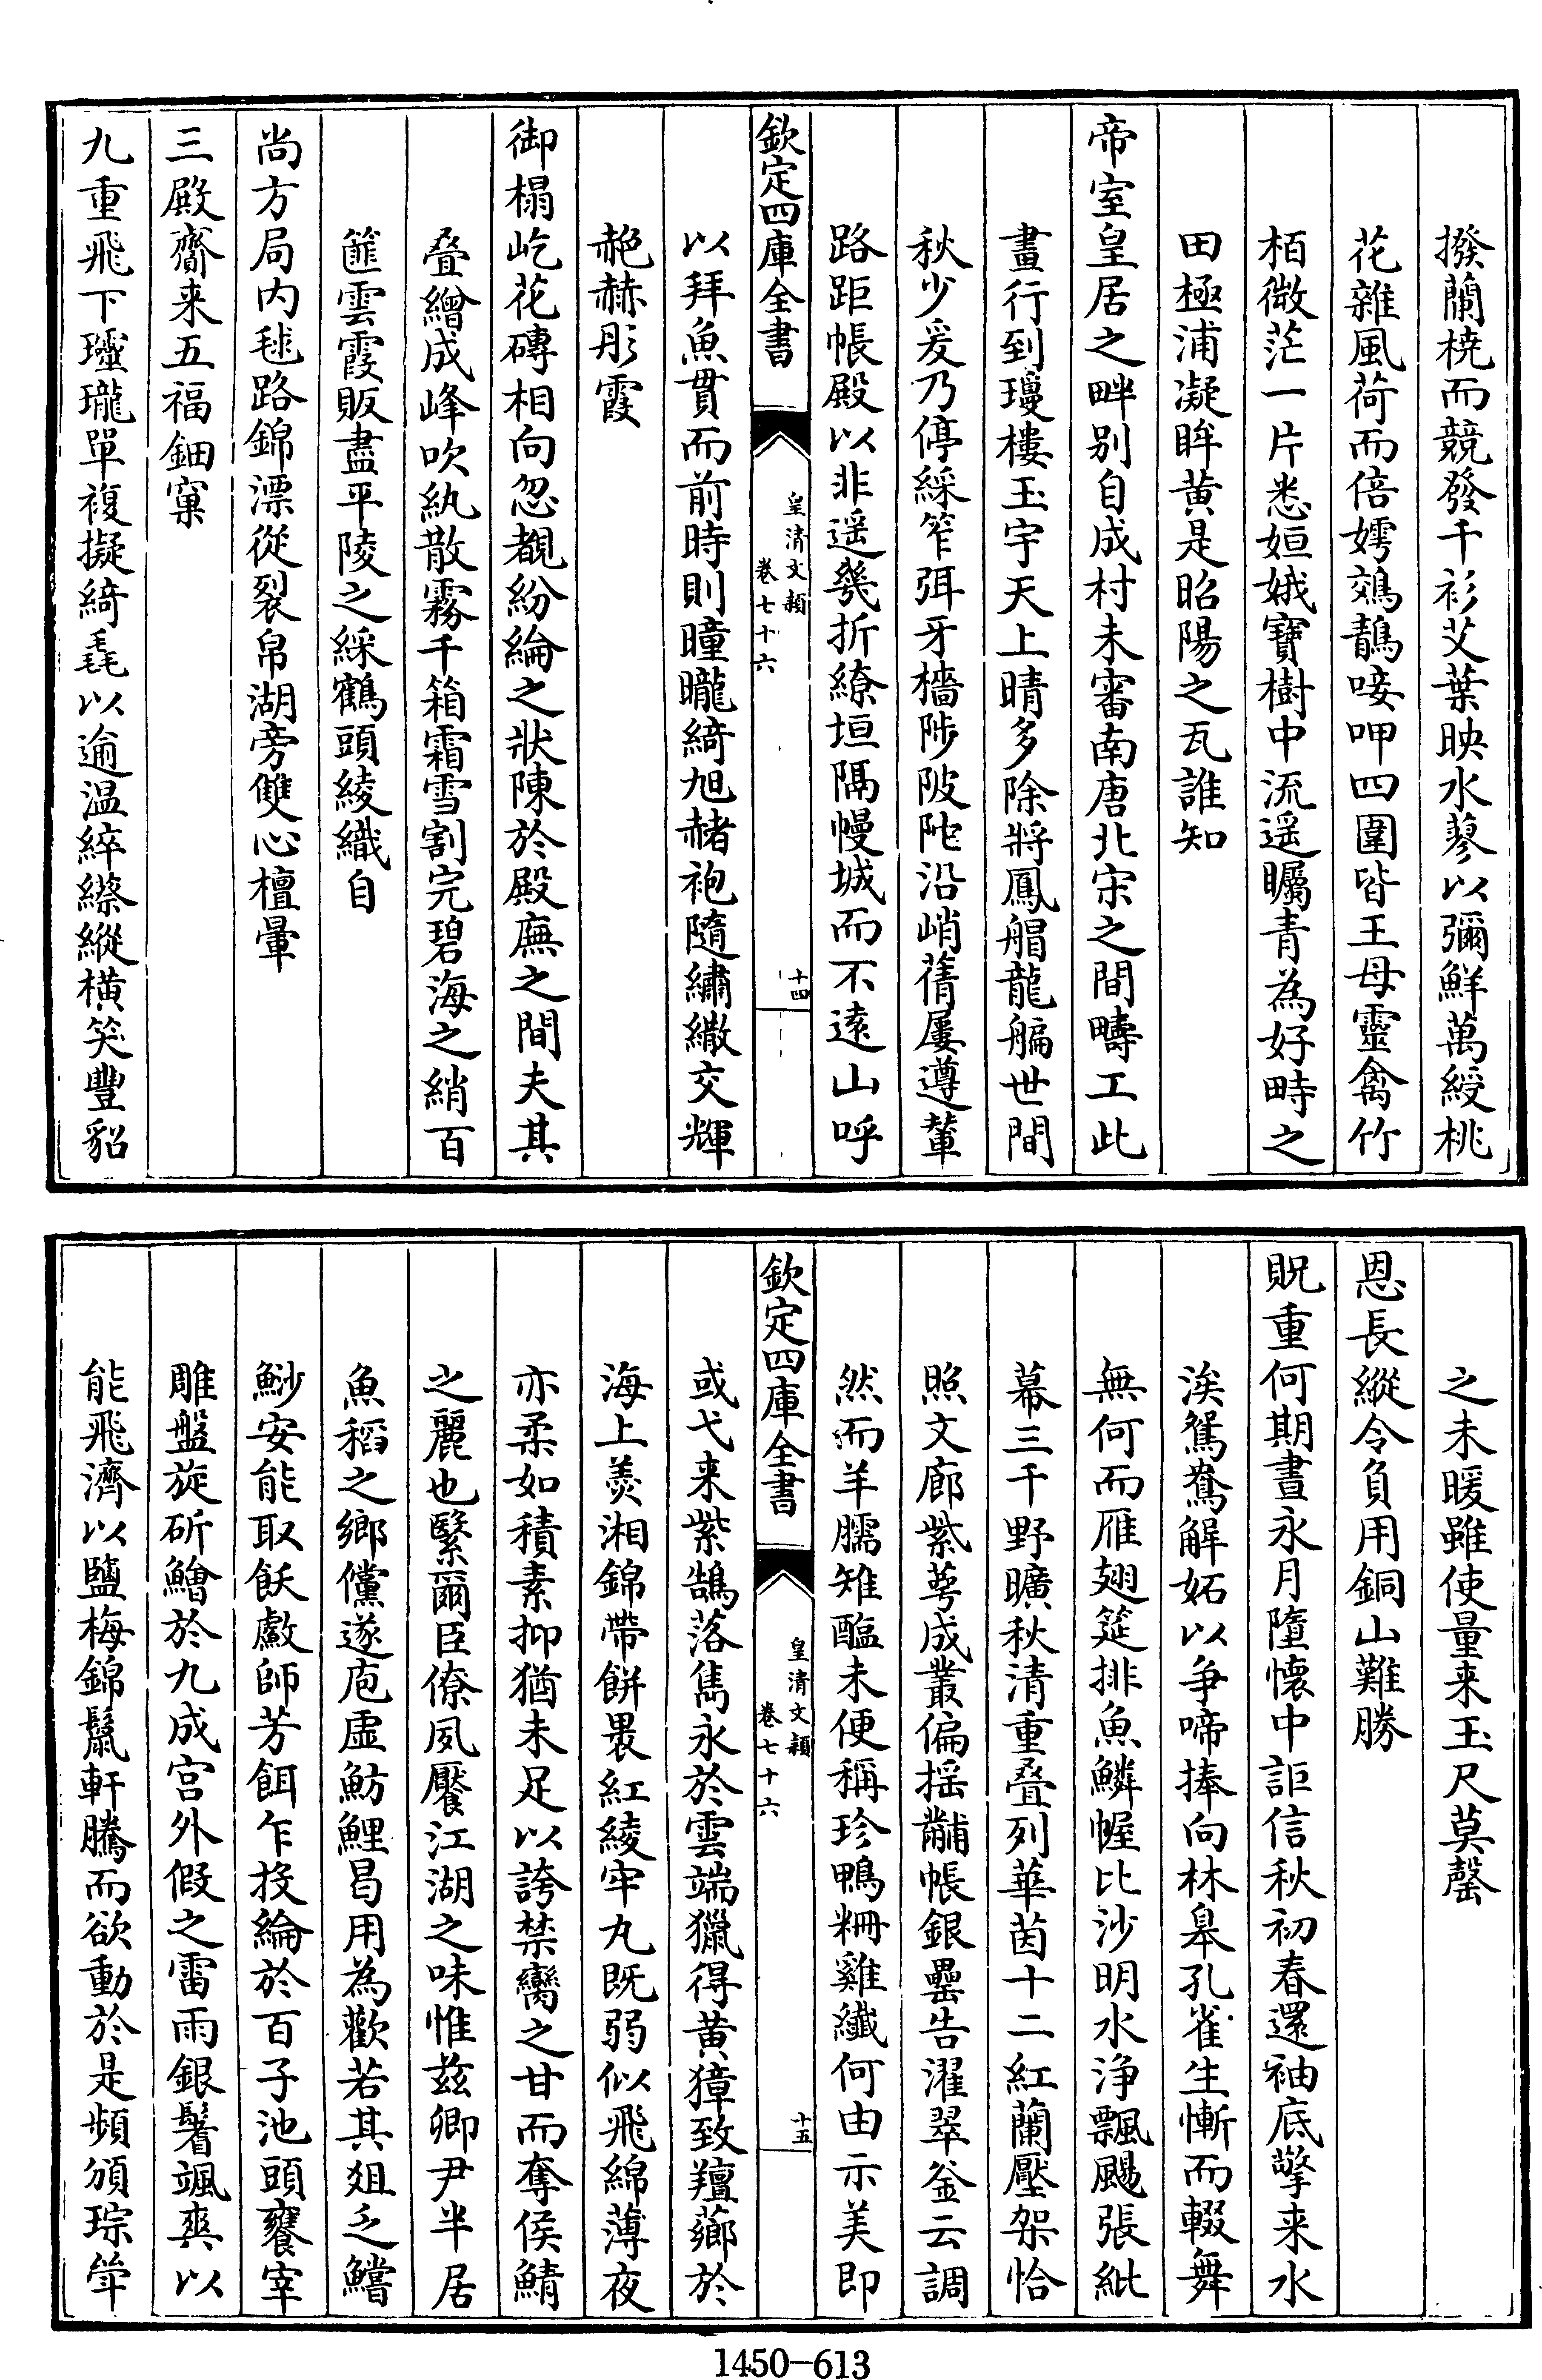 撥蘭橈而競發千衫艾葉映水蓼以彌鮮萬綬桃
花雜風荷而倍嫮鵁鶄唼呷四圍皆王母靈禽竹
栢微茫一片悉姮娥寶樹中流遥矚青為好畤之
田極浦凝眸黄是昭陽之瓦誰知
帝室皇居之畔别自成村未審南唐北宋之間疇工此
畫行到瓊樓玉宇天上晴多除將鳳艒龍艑世間
秋少爰乃停綵笮弭牙檣陟陂陀沿峭蒨屢遵輦
路距帳殿以非遥幾折繚垣隔幔城而不遠山呼
欽定四庫全書
皇清文穎
卷七十六
十四
以拜魚貫而前時則曈曨綺旭赭袍隨繡繖交輝
赩赫彤霞
御榻屹花磚相向忽覩紛綸之狀陳於殿廡之間夫其
叠繒成峰吹紈散霧千箱霜雪割完碧海之綃百
篚雲霞販盡平陵之綵鶴頭綾織自
尚方局内毬路錦漂從裂帛湖旁雙心檀暈
三殿齎来五福鈿窠
九重飛下瓏單複擬綺毳以逾温綷縩縱横笑豐貂
之未暖雖使量来玉尺莫罄
恩長縱令負用銅山難勝
貺重何期晝永月墮懷中詎信秋初春還袖底擎来水
涘鴛鴦解妬以争啼捧向林皋孔雀生慚而輟舞
無何而雁翅筵排魚鱗幄比沙明水浄飄颺張紕
幕三千野曠秋清重叠列華茵十二紅蘭壓架恰
照文廊紫萼成叢偏揺黼帳銀罍告濯翠釜云調
然而羊臑雉醢未便稱珍鴨粣雞纖何由示美即
欽定四庫全書
皇清文穎
卷七十六
十五
或弋来紫鵠落雋永於雲端獵得黄獐致羶薌於
海上羮湘錦帶餅褁紅綾牢丸既弱似飛綿薄夜
亦柔如積素抑猶未足以誇禁臠之甘而奪侯鯖
之麗也繄爾臣僚夙饜江湖之味惟兹卿尹半居
魚稻之鄉儻遂庖虚魴鯉曷用為歡若其爼乏鱨
魦安能取飫㪺師芳餌乍投綸於百子池頭饔宰
雕盤旋斫鱠於九成宫外假之雷雨銀鬐颯爽以
能飛濟以鹽梅錦鬣軒騰而欲動於是頻頒琮斝
1450-613